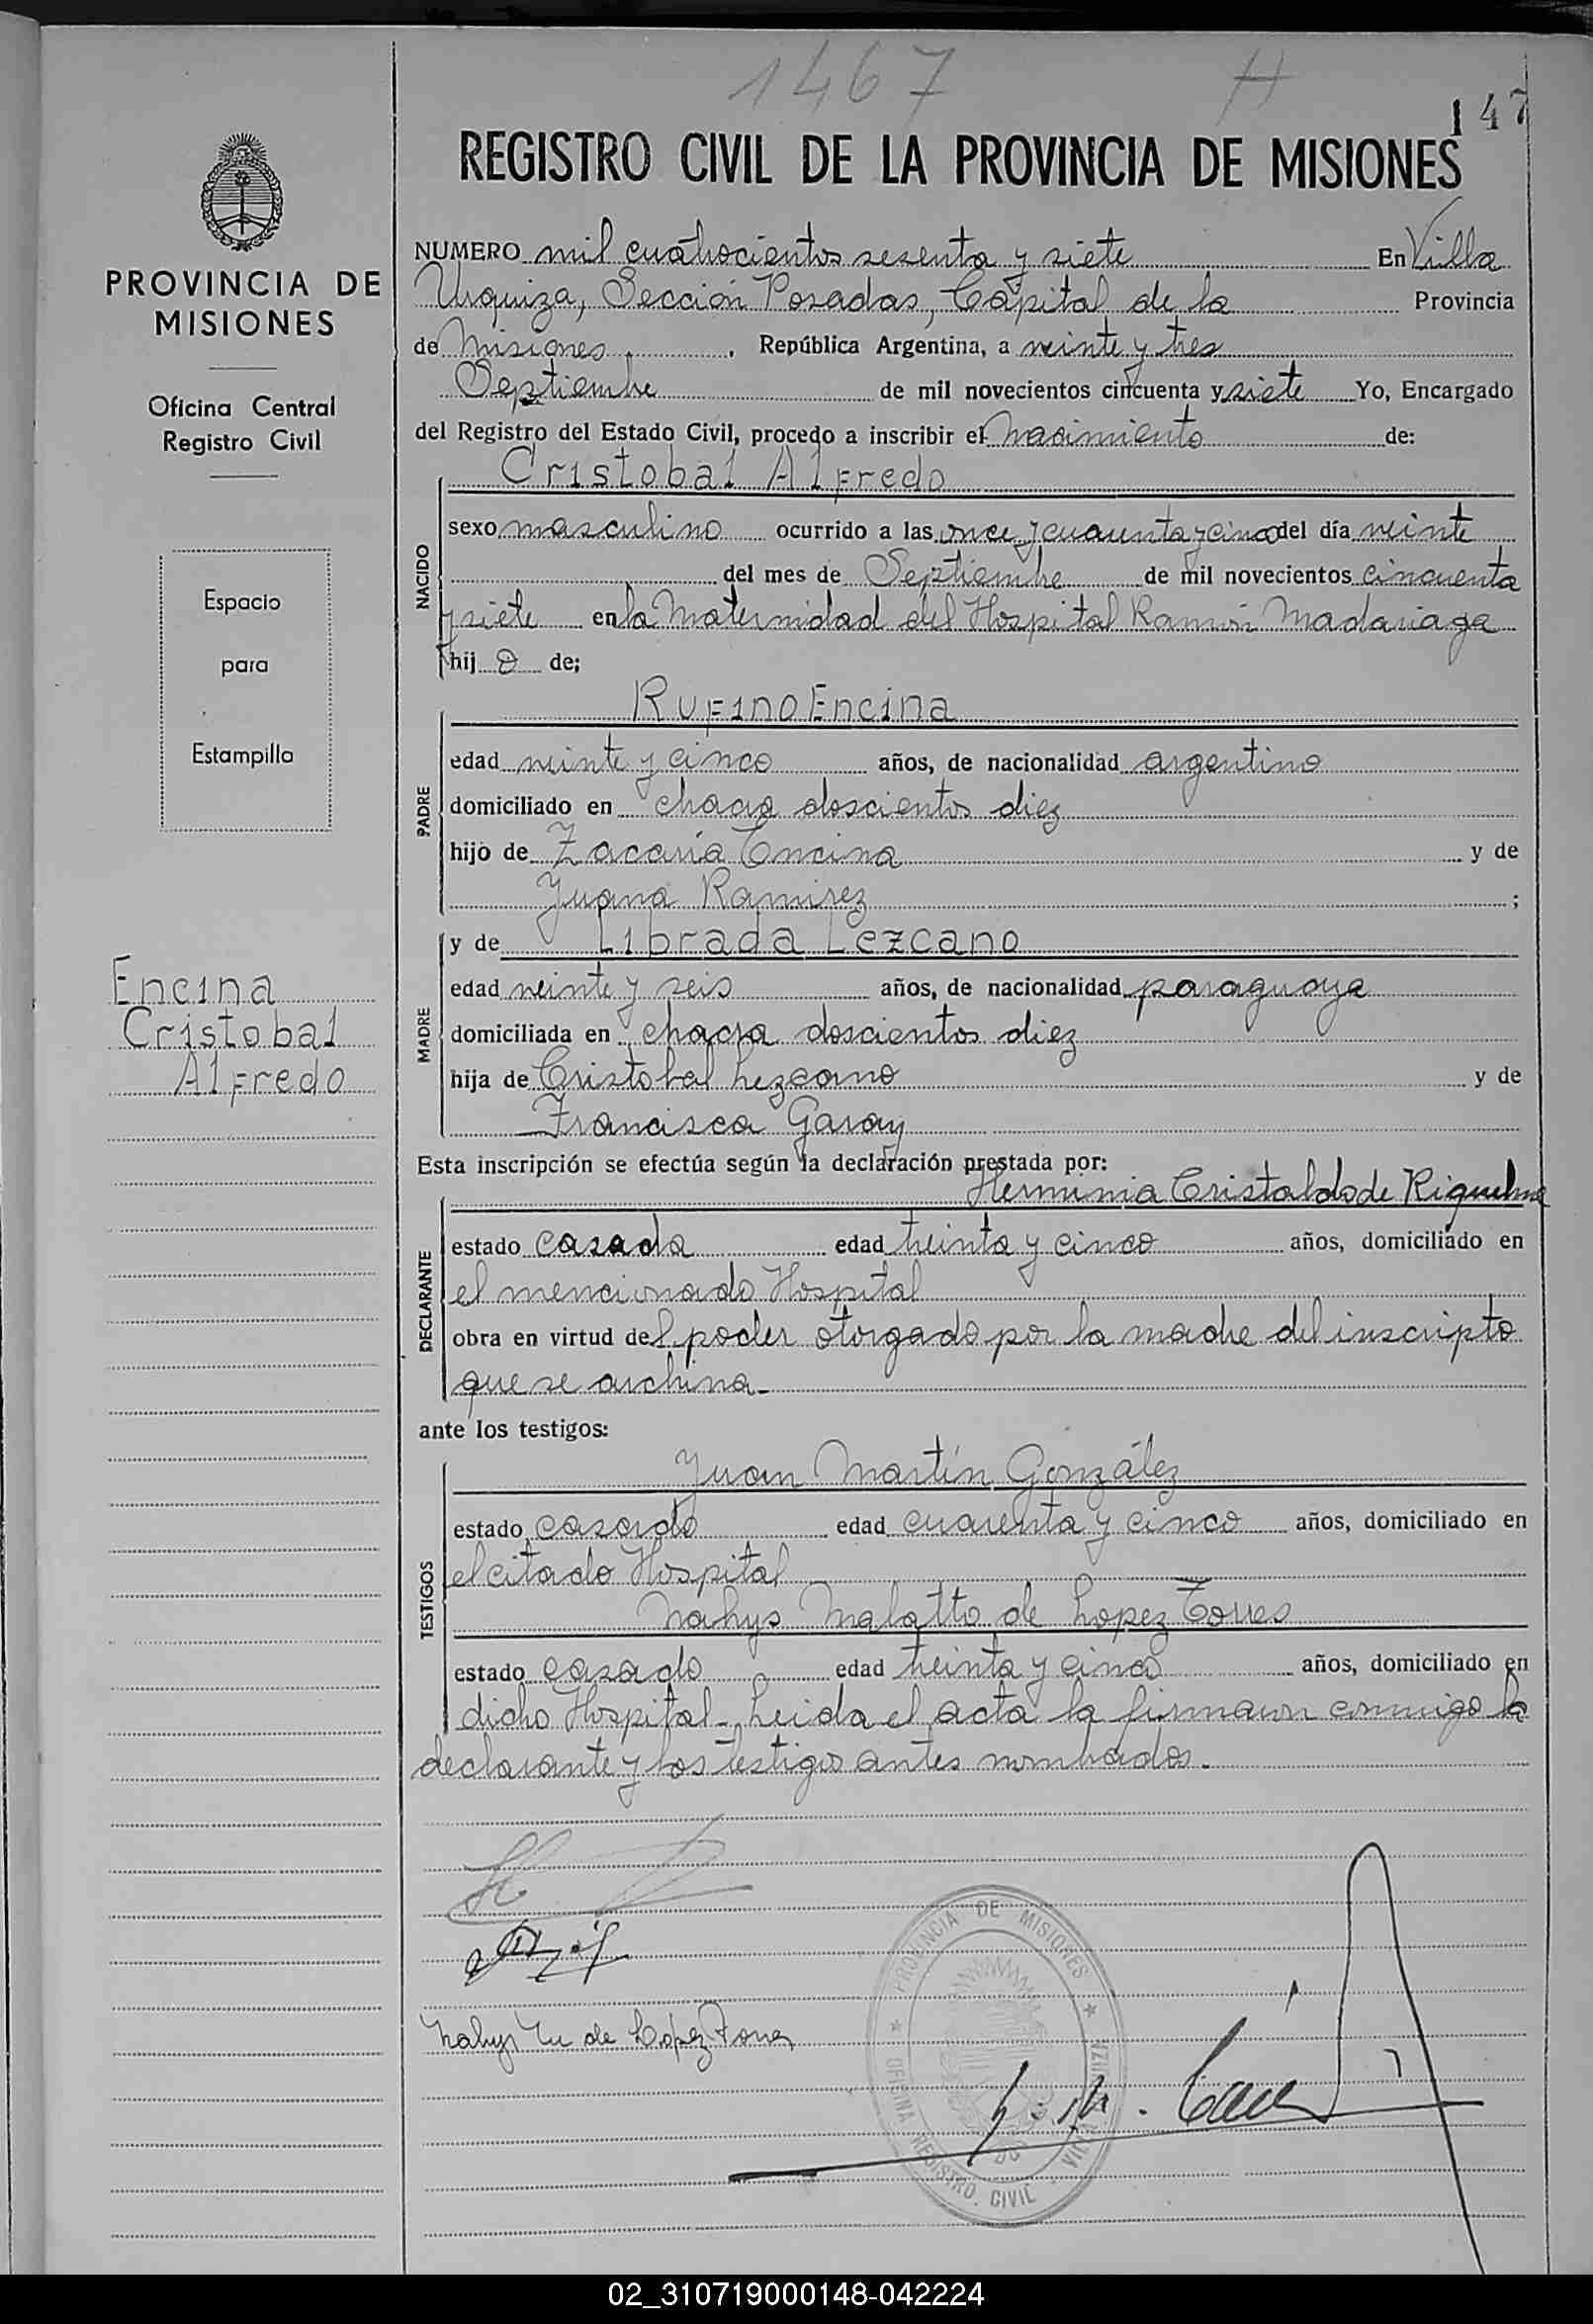 1467 H
147
REGISTRO CIVIL DE LA PROVINCIA DE MISIONES
PROVINCIA DE
MISIONES
Oficina Central
Registro Civil
Espacio
para
Estampilla
Encina
Cristobal
Alfredo
NUMERO mil cuatrocientos sesenta y siete En Villa
Urquiza, Sección Posadas, Capital de la Provincia
de Misiones, República Argentina, a veinte y tres
Septiembre de mil novecientos cincuenta y siete Yo, Encargado
del Registro del Estado Civil, procedo a inscribir el nacimiento de:
Cristobal Alfredo
NACIDO
sexo masculino ocurrido a las once y cuarenta y cinco del día veinte
del mes de Septiembre de mil novecientos cincuenta
y siete en la Maternidad del Hospital Ramón Madariaga
hij o de;
Rufino Encina
PADRE
edad veinte y cinco años, de nacionalidad argentino
domiciliado en chacra doscientos diez
hijo de Zacaria Encina y de
Juana Ramirez ;
y de Librada Lezcano
MADRE
edad veinte y seis años, de nacionalidad paraguaya
domiciliada en chacra doscientos diez
hija de Cristobal Lezcano y de
Francisca Garay
Esta inscripción se efectúa según la declaración prestada por:
Herminia Cristaldo de Riquelme
DECLARANTE
estado casada edad treinta y cinco años, domiciliado en
el mencionado Hospital
obra en virtud del poder otorgado por la madre del inscripto
que se archiva.-
ante los testigos:
Juan Martín González
TESTIGOS
estado casado edad cuarenta y cinco años, domiciliado en
el citado Hospital
Nahys Malatto de Lopez Torres
estado casado edad treinta y cinco años, domiciliado en
dicho Hospital.- Leida el acta la firmaron conmigo la
declarante y los testigos antes nombrados.
Nahys M de Lopez Torres
PROVINCIA DE MISIONES
OFICINA REGISTRO CIVIL
02_310719000148-042224